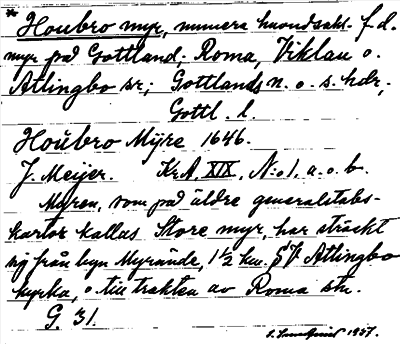 * Houbro myr, numera huvudsakl. f.d.
myr på Gottland; Roma, Viklau o.
Atlingbo sr; Gottlands n. o. s. hdr,
Gottl. l.
Houbro Myre 1646.
J. Meijer. KrA, XIX, N:o 1. a. o. b.
Myren, som på äldre generalstabs-
kartor kallas Store myr, har sträckt
sig från byn Myrände, 1 1/2 km. SV Atlingbo
kyrka, o till trakten av Roma stn.
G. 31.
1937.